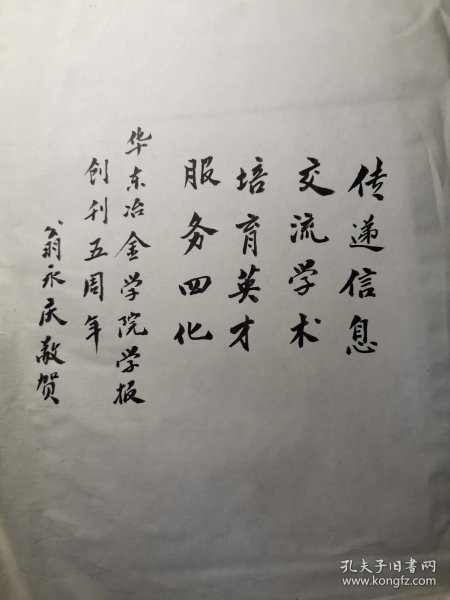 传递信息
交流学术
培育英才
服务四化
华东冶金学院学报
创刊五周年
翁永庆敬贺
孔夫子旧书网
www.kongfz.com